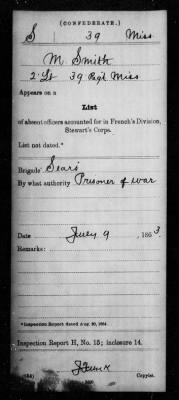 (CONFEDERATE.)
S 39 Miss
M. Smith
2' Lt 39 Reg't Miss
Appears on a
List
of absent officers accounted for in French's Division,
Stewart's Corps.
List not dated.*
Brigade Sears'
By what authority Prisoner of war
Date July 9, 1863
Remarks:
*Inspection Report dated Aug. 20, 1864.
Inspection Report H, No. 15; inclosure 14.
Copyist.